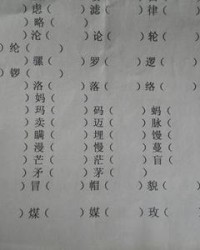 ）虑（ ）滤（ ）律（
）略（ ）
）沦（ ）论（ ）轮（
）纶（ ）
）骡（ ）罗（ ）逻（
）锣（ ）
）洛（ ）落（ ）络（
）妈（ ）
）玛（ ）码（ ）蚂（
）卖（ ）迈（ ）脉（
）瞒（ ）埋（ ）馒（
）漫（ ）慢（ ）蔓（
）芒（ ）茫（ ）盲（
）矛（ ）茅（ ）
）冒（ ）帽（ ）貌（
）煤（ ）媒（ ）玫（